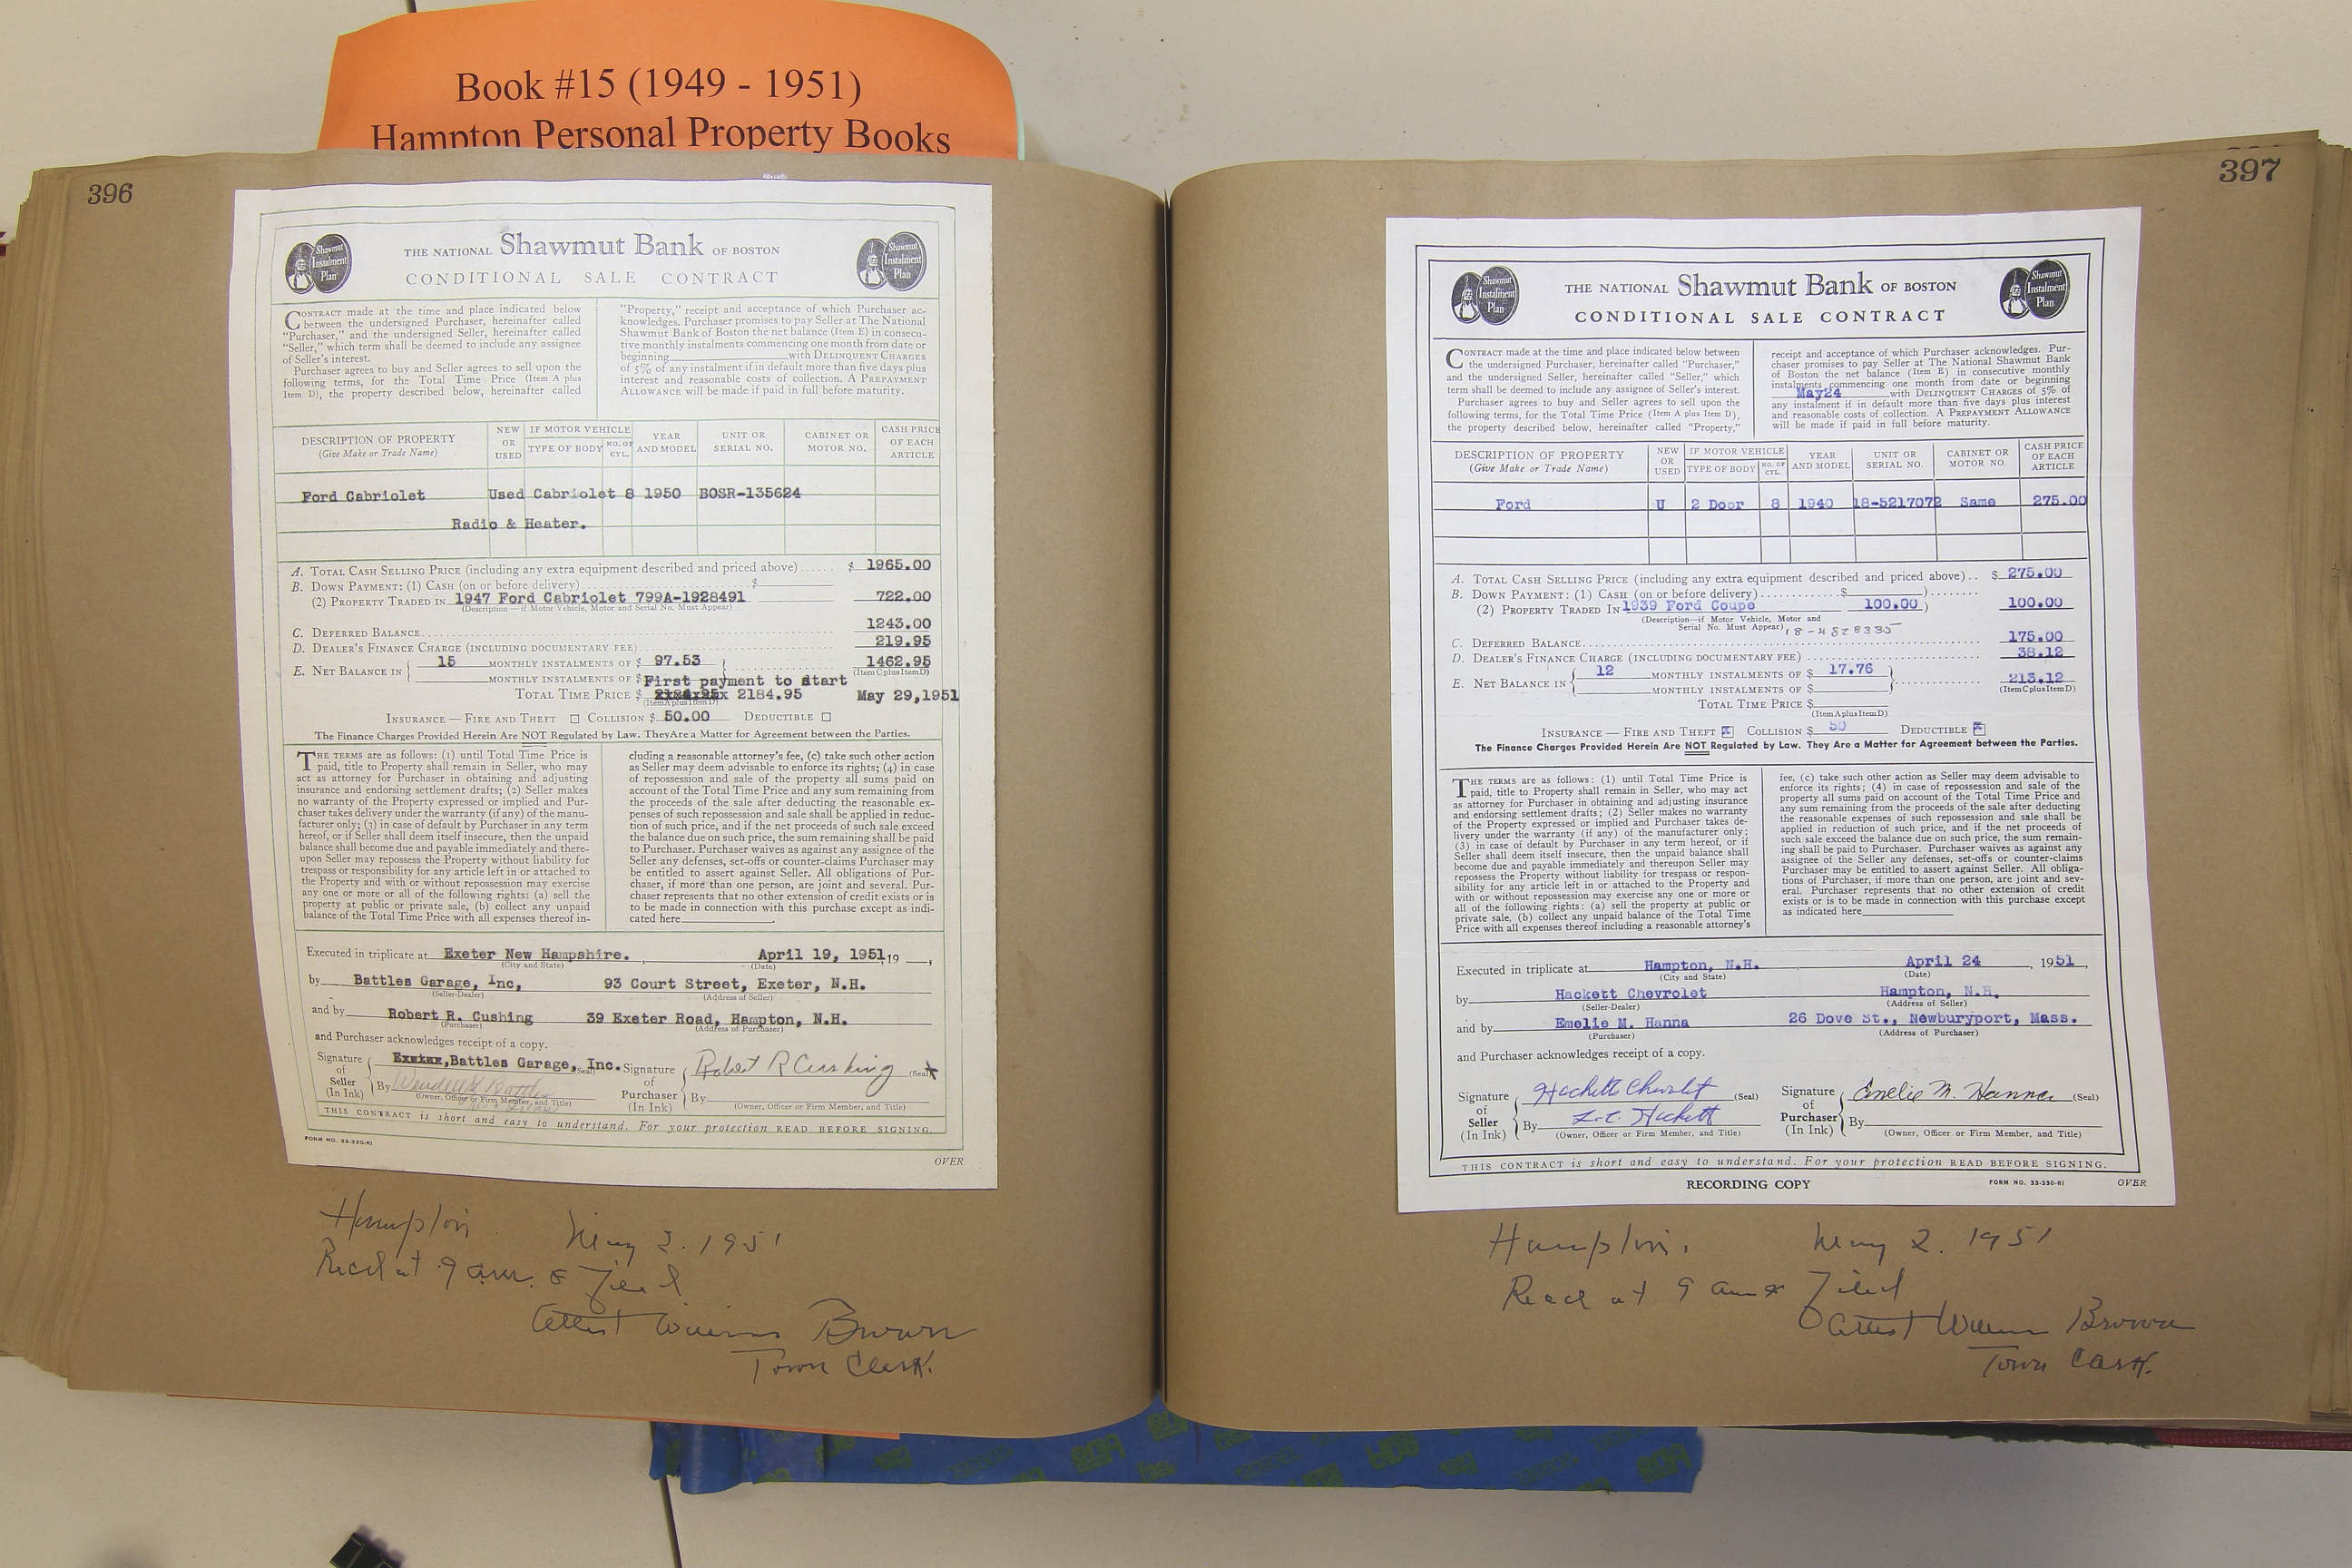 Book #15 (1949 - 1951)
Hampton Personal Property Books
396
Shawmut
Instalment
Plan
THE NATIONAL Shawmut Bank OF BOSTON
CONDITIONAL SALE CONTRACT
Shawmut
Instalment
Plan
CONTRACT made at the time and place indicated below
between the undersigned Purchaser, hereinafter called
"Purchaser," and the undersigned Seller, hereinafter called
"Seller," which term shall be deemed to include any assignee
of Seller's interest.
Purchaser agrees to buy and Seller agrees to sell upon the
following terms, for the Total Time Price (Item A plus
Item D), the property described below, hereinafter called
"Property," receipt and acceptance of which Purchaser ac-
knowledges. Purchaser promises to pay Seller at The National
Shawmut Bank of Boston the net balance (Item E) in consecu-
tive monthly instalments commencing one month from date or
beginning with DELINQUENT CHARGES
of 5% of any instalment if in default more than five days plus
interest and reasonable costs of collection. A PREPAYMENT
ALLOWANCE will be made if paid in full before maturity.
DESCRIPTION OF PROPERTY
(Give Make or Trade Name)
NEW OR USED
IF MOTOR VEHICLE
TYPE OF BODY NO. OF CYL.
YEAR AND MODEL
UNIT OR SERIAL NO.
CABINET OR MOTOR NO.
CASH PRICE OF EACH ARTICLE
Ford Cabriolet Used Cabriolet 8 1950 BOSR-135624
Radio & Heater.
A. TOTAL CASH SELLING PRICE (including any extra equipment described and priced above) $ 1965.00
B. DOWN PAYMENT: (1) CASH (on or before delivery) $
(2) PROPERTY TRADED IN 1947 Ford Cabriolet 799A-1928491 722.00
(Description—if Motor Vehicle, Motor and Serial No. Must Appear)
C. DEFERRED BALANCE 1243.00
D. DEALER'S FINANCE CHARGE (INCLUDING DOCUMENTARY FEE) 219.95
E. NET BALANCE IN 15 MONTHLY INSTALMENTS OF $ 97.53 1462.95
MONTHLY INSTALMENTS OF $ First payment to start (Item C plus Item D)
TOTAL TIME PRICE $ 2184.95 May 29,1951
(Item A plus Item D)
INSURANCE — FIRE AND THEFT ☐ COLLISION $ 50.00 DEDUCTIBLE ☐
The Finance Charges Provided Herein Are NOT Regulated by Law. They Are a Matter for Agreement between the Parties.
THE TERMS are as follows: (1) until Total Time Price is
paid, title to Property shall remain in Seller, who may
act as attorney for Purchaser in obtaining and adjusting
insurance and endorsing settlement drafts; (2) Seller makes
no warranty of the Property expressed or implied and Pur-
chaser takes delivery under the warranty (if any) of the manu-
facturer only; (3) in case of default by Purchaser in any term
hereof, or if Seller shall deem itself insecure, then the unpaid
balance shall become due and payable immediately and there-
upon Seller may repossess the Property without liability for
trespass or responsibility for any article left in or attached to
the Property and with or without repossession may exercise
any one or more or all of the following rights: (a) sell the
property at public or private sale, (b) collect any unpaid
balance of the Total Time Price with all expenses thereof in-
cluding a reasonable attorney's fee, (c) take such other action
as Seller may deem advisable to enforce its rights; (4) in case
of repossession and sale of the property all sums paid on
account of the Total Time Price and any sum remaining from
the proceeds of the sale after deducting the reasonable ex-
penses of such repossession and sale shall be applied in reduc-
tion of such price, and if the net proceeds of such sale exceed
the balance due on such price, the sum remaining shall be paid
to Purchaser. Purchaser waives as against any assignee of the
Seller any defenses, set-offs or counter-claims Purchaser may
be entitled to assert against Seller. All obligations of Pur-
chaser, if more than one person, are joint and several. Pur-
chaser represents that no other extension of credit exists or is
to be made in connection with this purchase except as indi-
cated here
Executed in triplicate at Exeter New Hampshire. April 19, 1951, 19
(City and State) (Date)
by Battles Garage, Inc, 93 Court Street, Exeter, N.H.
(Seller-Dealer) (Address of Seller)
and by Robert R. Cushing 39 Exeter Road, Hampton, N.H.
(Purchaser) (Address of Purchaser)
and Purchaser acknowledges receipt of a copy.
Signature of Seller (In Ink) Battles Garage, Inc. (Seal)
By Wendell Battles
(Owner, Officer or Firm Member, and Title)
Signature of Purchaser (In Ink) Robert R Cushing (Seal)
By
(Owner, Officer or Firm Member, and Title)
THIS CONTRACT is short and easy to understand. For your protection READ BEFORE SIGNING.
FORM NO. 33-330-RI
OVER
Hampton May 2. 1951
Recd at 9 am. & Filed
Attest William Brown
Town Clerk.
397
Shawmut
Instalment
Plan
THE NATIONAL Shawmut Bank OF BOSTON
CONDITIONAL SALE CONTRACT
Shawmut
Instalment
Plan
CONTRACT made at the time and place indicated below between
the undersigned Purchaser, hereinafter called "Purchaser,"
and the undersigned Seller, hereinafter called "Seller," which
term shall be deemed to include any assignee of Seller's interest.
Purchaser agrees to buy and Seller agrees to sell upon the
following terms, for the Total Time Price (Item A plus Item D),
the property described below, hereinafter called "Property,"
receipt and acceptance of which Purchaser acknowledges. Pur-
chaser promises to pay Seller at The National Shawmut Bank
of Boston the net balance (Item E) in consecutive monthly
instalments commencing one month from date or beginning
May24 with DELINQUENT CHARGES of 5% of
any instalment if in default more than five days plus interest
and reasonable costs of collection. A PREPAYMENT ALLOWANCE
will be made if paid in full before maturity.
DESCRIPTION OF PROPERTY
(Give Make or Trade Name)
NEW OR USED
IF MOTOR VEHICLE
TYPE OF BODY NO. OF CYL.
YEAR AND MODEL
UNIT OR SERIAL NO.
CABINET OR MOTOR NO.
CASH PRICE OF EACH ARTICLE
Ford U 2 Door 8 1940 18-5217072 Same 275.00
A. TOTAL CASH SELLING PRICE (including any extra equipment described and priced above) $ 275.00
B. DOWN PAYMENT: (1) CASH (on or before delivery) $ )
(2) PROPERTY TRADED IN 1939 Ford Coupe 100.00 ) 100.00
(Description—if Motor Vehicle, Motor and
Serial No. Must Appear) 18-4828335
C. DEFERRED BALANCE 175.00
D. DEALER'S FINANCE CHARGE (INCLUDING DOCUMENTARY FEE) 38.12
E. NET BALANCE IN 12 MONTHLY INSTALMENTS OF $ 17.76 213.12
MONTHLY INSTALMENTS OF $ (Item C plus Item D)
TOTAL TIME PRICE $
(Item A plus Item D)
INSURANCE — FIRE AND THEFT ☒ COLLISION $ 50 DEDUCTIBLE ☒
The Finance Charges Provided Herein Are NOT Regulated by Law. They Are a Matter for Agreement between the Parties.
THE TERMS are as follows: (1) until Total Time Price is
paid, title to Property shall remain in Seller, who may act
as attorney for Purchaser in obtaining and adjusting insurance
and endorsing settlement drafts; (2) Seller makes no warranty
of the Property expressed or implied and Purchaser takes de-
livery under the warranty (if any) of the manufacturer only;
(3) in case of default by Purchaser in any term hereof, or if
Seller shall deem itself insecure, then the unpaid balance shall
become due and payable immediately and thereupon Seller may
repossess the Property without liability for trespass or respon-
sibility for any article left in or attached to the Property and
with or without repossession may exercise any one or more or
all of the following rights: (a) sell the property at public or
private sale, (b) collect any unpaid balance of the Total Time
Price with all expenses thereof including a reasonable attorney's
fee, (c) take such other action as Seller may deem advisable to
enforce its rights; (4) in case of repossession and sale of the
property all sums paid on account of the Total Time Price and
any sum remaining from the proceeds of the sale after deducting
the reasonable expenses of such repossession and sale shall be
applied in reduction of such price, and if the net proceeds of
such sale exceed the balance due on such price, the sum remain-
ing shall be paid to Purchaser. Purchaser waives as against any
assignee of the Seller any defenses, set-offs or counter-claims
Purchaser may be entitled to assert against Seller. All obliga-
tions of Purchaser, if more than one person, are joint and sev-
eral. Purchaser represents that no other extension of credit
exists or is to be made in connection with this purchase except
as indicated here
Executed in triplicate at Hampton, N.H. , April 24 , 1951,
(City and State) (Date)
by Hackett Chevrolet Hampton, N.H.
(Seller-Dealer) (Address of Seller)
and by Emelie M. Hanna 26 Dove St., Newburyport, Mass.
(Purchaser) (Address of Purchaser)
and Purchaser acknowledges receipt of a copy.
Signature of Seller (In Ink) Hacketts Chevrolet (Seal)
By L.C. Hackett
(Owner, Officer or Firm Member, and Title)
Signature of Purchaser (In Ink) Emelie M. Hanna (Seal)
By
(Owner, Officer or Firm Member, and Title)
THIS CONTRACT is short and easy to understand. For your protection READ BEFORE SIGNING.
RECORDING COPY
FORM NO. 33-330-RI
OVER
Hampton. May 2. 1951
Recd at 9 am & Filed
Attest William Brown
Town Clerk.